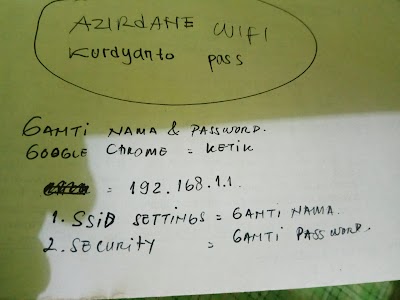 AZIRDANE WIFI
Kurdyanto pass
GANTI NAMA & PASSWORD.
GOOGLE CHROME = KETIK
= 192.168.1.1.
1. SSID SETTINGS = GANTI NAMA.
2. SECURITY = GANTI PASSWORD.